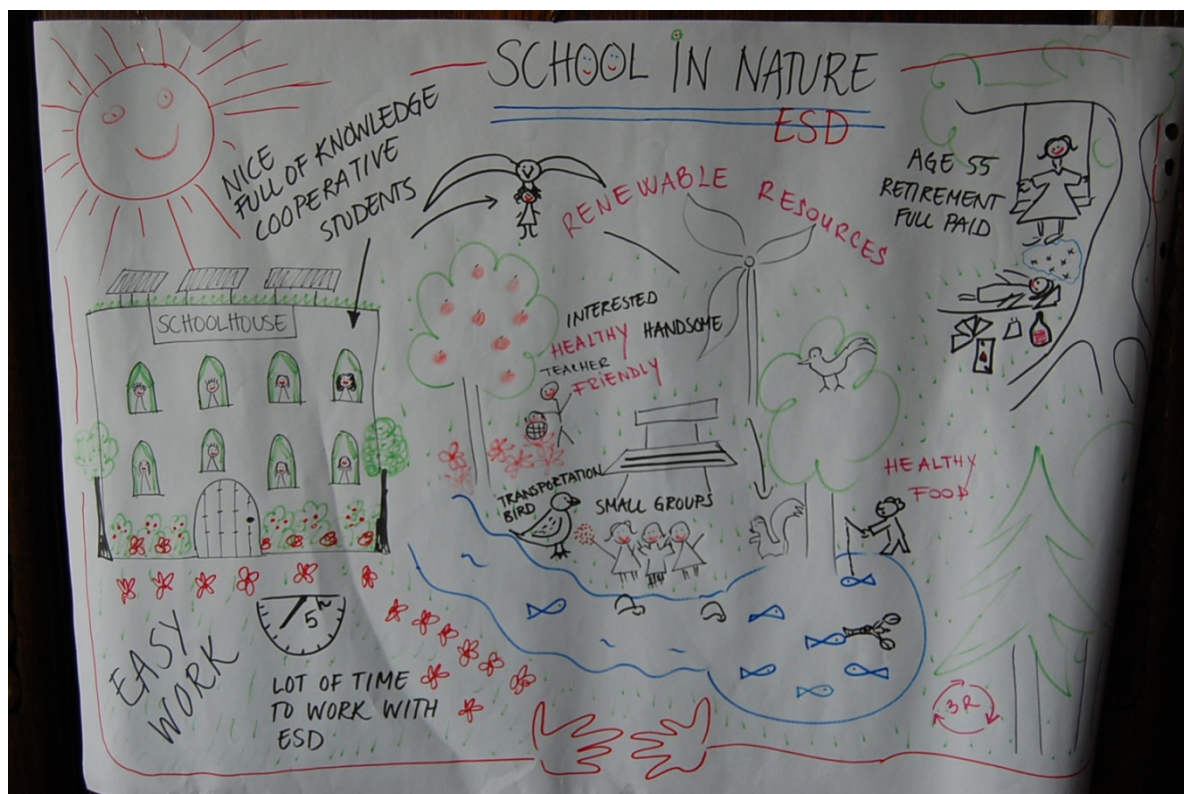 SCHOOL IN NATURE
ESD
NICE
FULL OF KNOWLEDGE
COOPERATIVE
STUDENTS
RENEWABLE RESOURCES
AGE 55
RETIREMENT
FULL PAID
SCHOOLHOUSE
INTERESTED
HEALTHY HANDSOME
TEACHER
FRIENDLY
TRANSPORTATION
BIRD
SMALL GROUPS
HEALTHY
FOOD
5h
EASY
WORK
LOT OF TIME
TO WORK WITH
ESD
3R